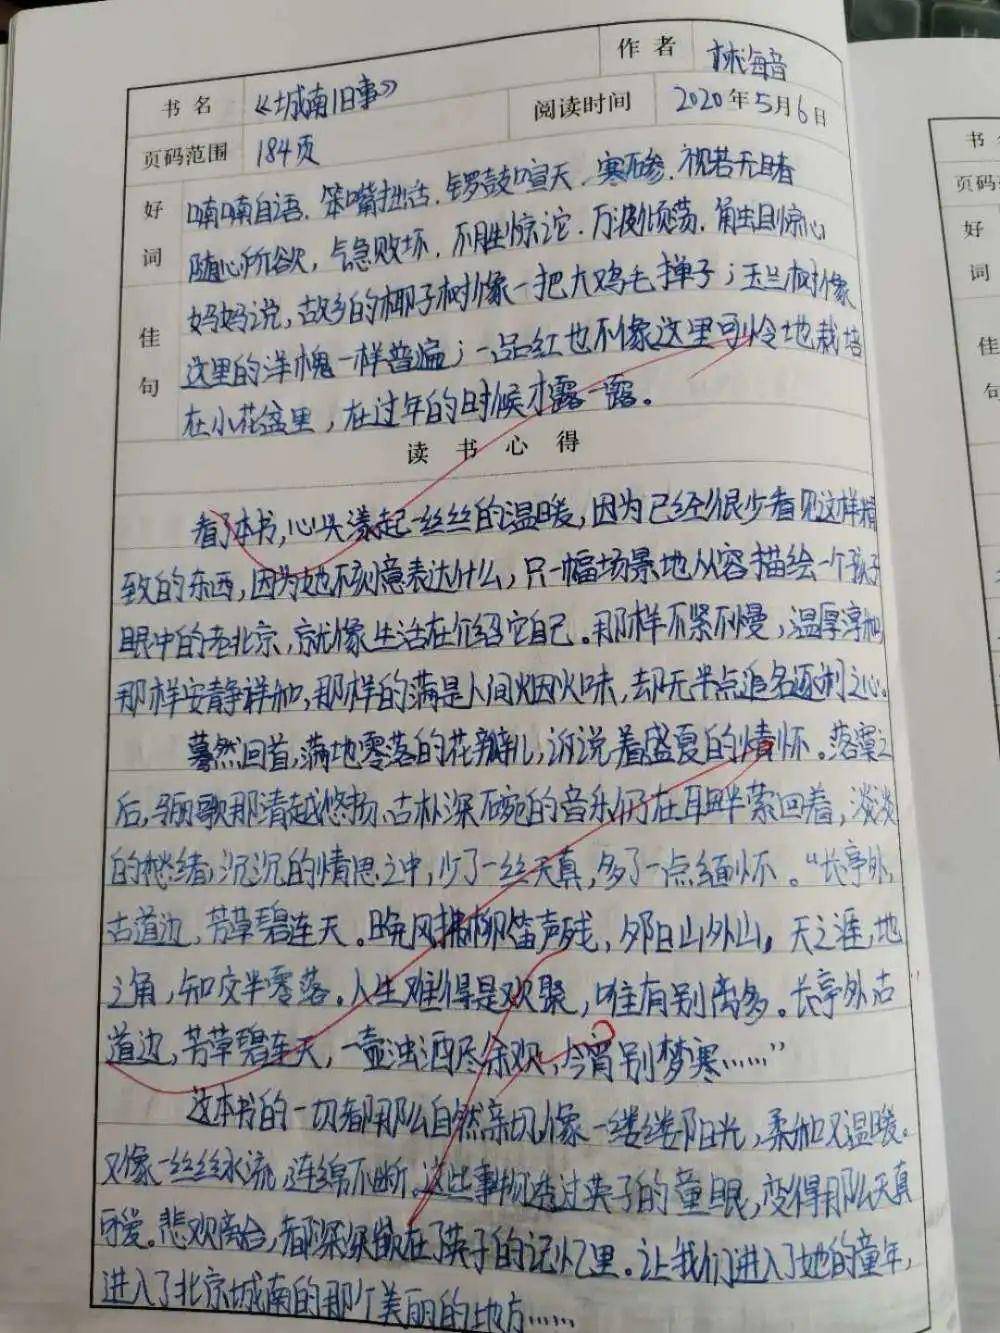 书名 《城南旧事》 作者 林海音
页码范围 184页 阅读时间 2020年5月6日
好词 喃喃自语、笨嘴拙舌、锣鼓喧天、寒碜、视若无睹
随心所欲、气急败坏、不胜惊诧、万波倾荡、触目惊心
佳句 妈妈说,故乡的椰子树像一把大鸡毛掸子;玉兰树像
这里的洋槐一样普遍;一品红也不像这里可怜地栽培
在小花盆里,在过年的时候才露一露。
读书心得
看了本书,心头漾起一丝丝的温暖,因为已经很少看见这样精
致的东西,因为她不刻意表达什么,只一幅场景地从容描绘一个孩子
眼中的老北京,就像生活在介绍它自己。那样不紧不慢,温厚淳和
那样安静祥和,那样的满是人间烟火味,却无半点追名逐利之心。
蓦然回首,满地零落的花瓣儿,诉说着盛夏的情怀。落寞之
后,骊歌那清越悠扬、古朴深婉的音乐仍在耳畔萦回着,淡淡
的愁绪,沉沉的情思之中,少了一丝天真,多了一点缅怀。“长亭外,
古道边,芳草碧连天。晚风拂柳笛声残,夕阳山外山。天之涯,地
之角,知交半零落。人生难得是欢聚,唯有别离多。长亭外古
道边,芳草碧连天,一壶浊酒尽余欢,今宵别梦寒……”
这本书的一切都那么自然亲切,像一缕缕阳光,柔和又温暖。
又像一丝丝水流,连绵不断。这些事物透过英子的童眼,变得那么天真
可爱。悲欢离合,都深深嵌在了英子的记忆里。让我们进入了她的童年,
进入了北京城南的那个美丽的地方……
书
页码
好
词
佳
句